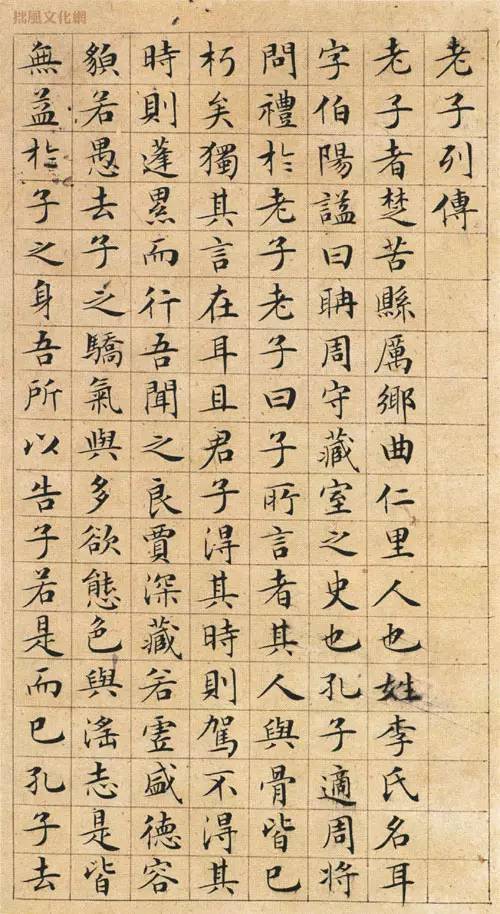 拙風文化網
老子列傳
老子者楚苦縣厲鄉曲仁里人也姓李氏名耳
字伯陽謚曰聃周守藏室之史也孔子適周將
問禮於老子老子曰子所言者其人與骨皆已
朽矣獨其言在耳且君子得其時則駕不得其
時則蓬累而行吾聞之良賈深藏若虛盛德容
貌若愚去子之驕氣與多欲態色與淫志是皆
無益於子之身吾所以告子若是而已孔子去